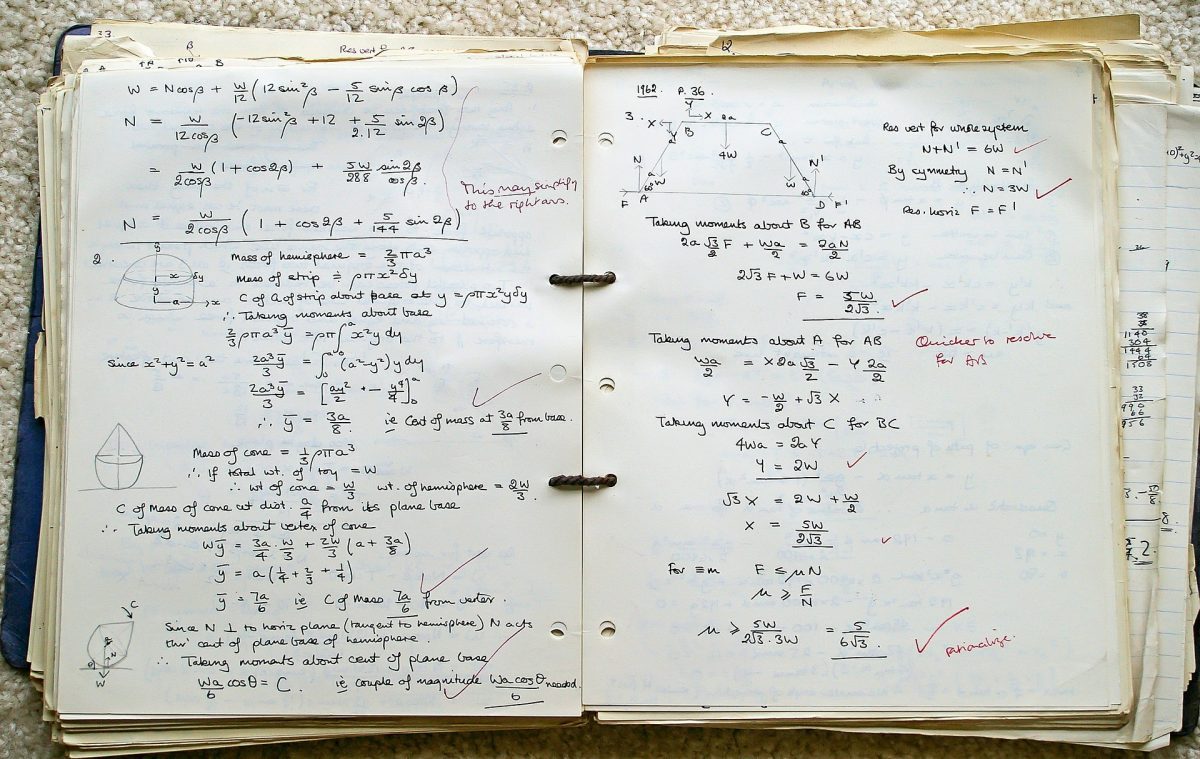 33
β
Res vert
W = Ncosβ + W/12 (12 sin²β − 5/12 sinβ cosβ)
N = W/12cosβ (−12sin²β + 12 + 5/2.12 sin 2β)
= W/2cosβ (1 + cos2β) + 5W/288 sin2β/cosβ.
This may simplify
to the right ans.
N = W/2cosβ (1 + cos2β + 5/144 sin 2β)
2.
Mass of hemisphere = 2/3 πa³
Mass of strip ≑ ρπx²δy
y x δy
y a x
C of G of strip about base at y = ρπx²yδy
∴ Taking moments about base
2/3 ρπa³ȳ = ρπ∫₀ᵃ x²y dy
since x²+y²=a² 2a³ȳ/3 = ∫₀ᵃ (a²−y²) y dy
2a³ȳ/3 = [ay²/2 − y⁴/4]₀ᵃ
∴ ȳ = 3a/8. ie Cent of mass at 3a/8 from base.
Mass of cone = 1/3 ρπa³
∴ If total wt. of toy = W
∴ wt of cone = W/3 wt. of hemisphere = 2W/3.
C of Mass of cone at dist. a/4 from its plane base
∴ Taking moments about vertex of cone
Wȳ = 3a/4 . W/3 + 2W/3 (a + 3a/8)
ȳ = a(1/4 + 2/3 + 1/4)
ȳ = 7a/6 ie C of Mass 7a/6 from vertex.
C
N
θ
W
Since N ⊥ to horiz plane (tangent to hemisphere) N acts
thro' cent of plane base of hemisphere.
∴ Taking moments about cent of plane base
Wa/6 cosθ = C. ie couple of magnitude Wa cosθ/6 needed.
1962. P. 36.
3.
Y
X X 2a
Y B C
4W
a a
N W W N'
a a
60° 60°
F A D F'
Res vert for whole system
N+N' = 6W
By symmetry N = N'
∴ N = 3W
Res. horiz F = F'
Taking moments about B for AB
2a √3/2 F + Wa/2 = 2aN/2
2√3 F + W = 6W
F = 5W/2√3.
Taking moments about A for AB
Quicker to resolve
for AB
Wa/2 = X 2a √3/2 − Y 2a/2
Y = −W/2 + √3 X
Taking moments about C for BC
4Wa = 2aY
Y = 2W
√3 X = 2W + W/2
X = 5W/2√3
for ≡m F ≤ μN
μ ≥ F/N
μ ≥ 5W/2√3.3W = 5/6√3.
rationalize.
38
38
1140
304
1444
64
1508
33
32
990
66
956